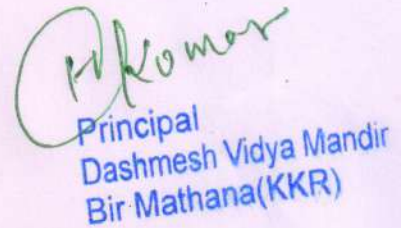 Kumar
Principal
Dashmesh Vidya Mandir
Bir Mathana(KKR)